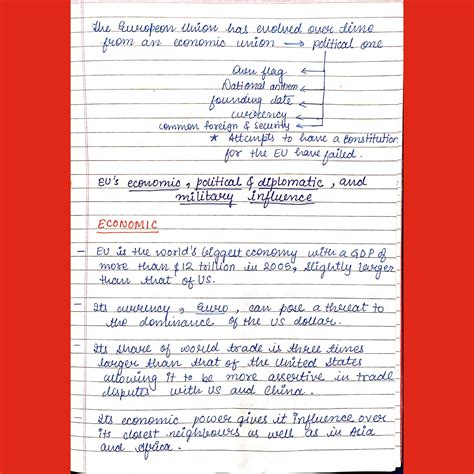 The European Union has evolved over time
from an economic union → political one
Own flag
National anthem
founding date
currency
common foreign & security
* Attempts to have a constitution
for the EU have failed.
EU's economic, political & diplomatic, and
military influence
ECONOMIC
- EU is the world's biggest economy with a GDP of
more than $12 trillion in 2005, slightly larger
than that of US.
- Its currency, Euro, can pose a threat to
the dominance of the US dollar.
- Its share of world trade is three times
larger than that of the United States
allowing it to be more assertive in trade
disputes with US and China.
- Its economic power gives it influence over
its closest neighbours as well as in Asia
and Africa.